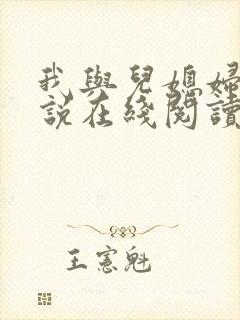 我與兒媳婦
說在綫閱讀
王憲魁